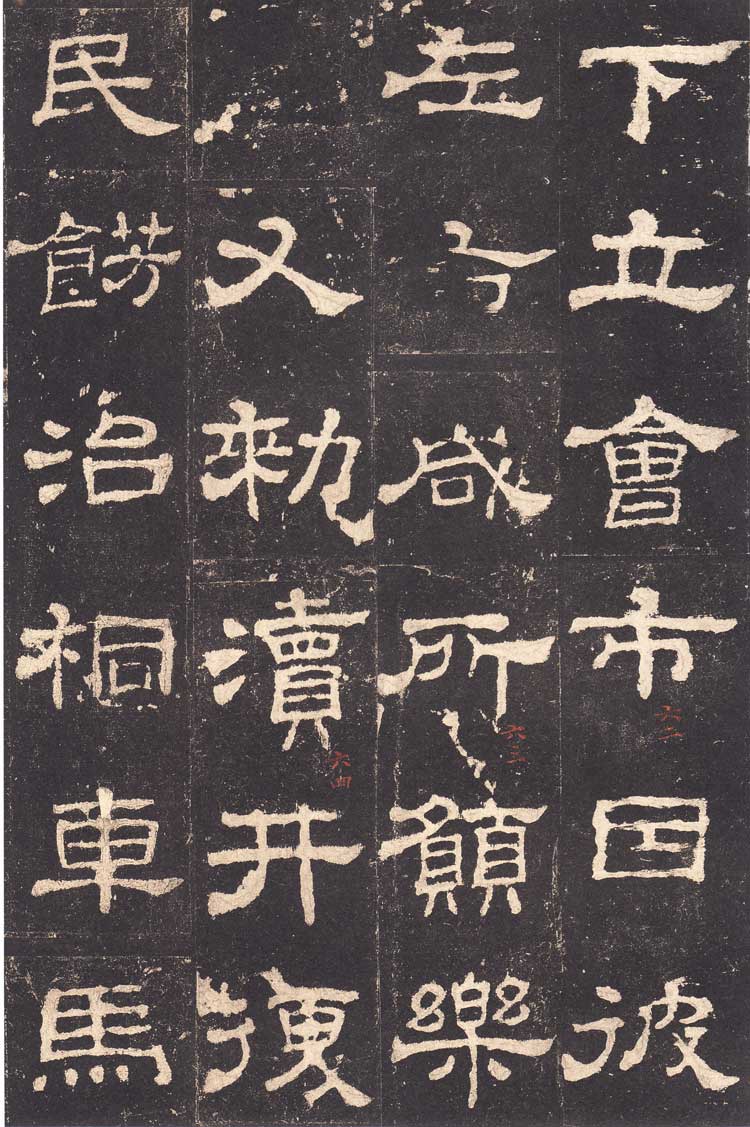 下立會市因彼
六二
左右咸所願樂
六三
又勑瀆井復
六四
民餝治桐車馬